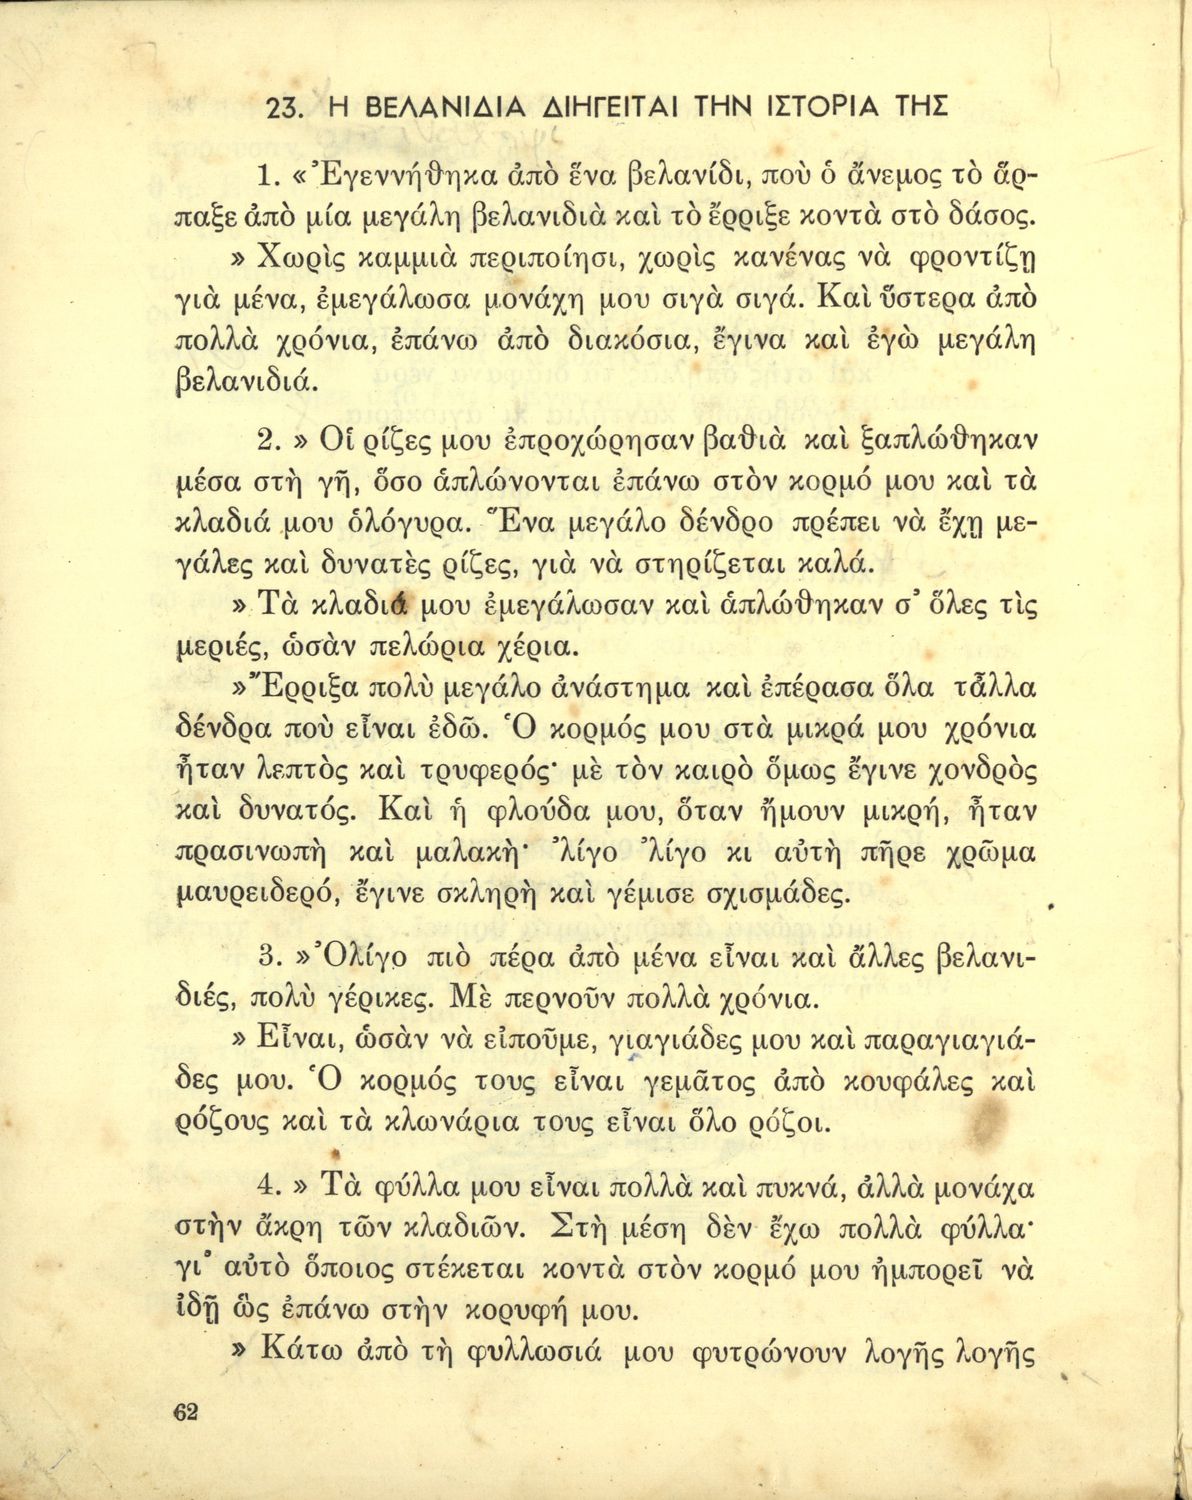 23. Η ΒΕΛΑΝΙΔΙΑ ΔΙΗΓΕΙΤΑΙ ΤΗΝ ΙΣΤΟΡΙΑ ΤΗΣ
1. «Ἐγεννήθηκα ἀπὸ ἕνα βελανίδι, ποὺ ὁ ἄνεμος τὸ ἅρ-
παξε ἀπὸ μία μεγάλη βελανιδιὰ καὶ τὸ ἔρριξε κοντὰ στὸ δάσος.
» Χωρὶς καμμιὰ περιποίησι, χωρὶς κανένας νὰ φροντίζῃ
γιὰ μένα, ἐμεγάλωσα μονάχη μου σιγὰ σιγά. Καὶ ὕστερα ἀπὸ
πολλὰ χρόνια, ἐπάνω ἀπὸ διακόσια, ἔγινα καὶ ἐγὼ μεγάλη
βελανιδιά.
2. » Οἱ ρίζες μου ἐπροχώρησαν βαθιὰ καὶ ξαπλώθηκαν
μέσα στὴ γῆ, ὅσο ἁπλώνονται ἐπάνω στὸν κορμό μου καὶ τὰ
κλαδιά μου ὁλόγυρα. Ἕνα μεγάλο δένδρο πρέπει νὰ ἔχῃ με-
γάλες καὶ δυνατὲς ρίζες, γιὰ νὰ στηρίζεται καλά.
» Τὰ κλαδιά μου ἐμεγάλωσαν καὶ ἁπλώθηκαν σ᾿ ὅλες τὶς
μεριές, ὡσὰν πελώρια χέρια.
» Ἔρριξα πολὺ μεγάλο ἀνάστημα καὶ ἐπέρασα ὅλα τἆλλα
δένδρα ποὺ εἶναι ἐδῶ. Ὁ κορμός μου στὰ μικρά μου χρόνια
ἦταν λεπτὸς καὶ τρυφερός· μὲ τὸν καιρὸ ὅμως ἔγινε χονδρὸς
καὶ δυνατός. Καὶ ἡ φλούδα μου, ὅταν ἤμουν μικρή, ἦταν
πρασινωπὴ καὶ μαλακὴ· ᾿λίγο ᾿λίγο κι αὐτὴ πῆρε χρῶμα
μαυρειδερό, ἔγινε σκληρὴ καὶ γέμισε σχισμάδες.
3. » Ὀλίγο πιὸ πέρα ἀπὸ μένα εἶναι καὶ ἄλλες βελανι-
διές, πολὺ γέρικες. Μὲ περνοῦν πολλὰ χρόνια.
» Εἶναι, ὡσὰν νὰ εἰποῦμε, γιαγιάδες μου καὶ παραγιαγιά-
δες μου. Ὁ κορμός τους εἶναι γεμᾶτος ἀπὸ κουφάλες καὶ
ρόζους καὶ τὰ κλωνάρια τους εἶναι ὅλο ρόζοι.
4. » Τὰ φύλλα μου εἶναι πολλὰ καὶ πυκνά, ἀλλὰ μονάχα
στὴν ἄκρη τῶν κλαδιῶν. Στὴ μέση δὲν ἔχω πολλὰ φύλλα·
γι᾿ αὐτὸ ὅποιος στέκεται κοντὰ στὸν κορμό μου ἠμπορεῖ νὰ
ἰδῇ ὣς ἐπάνω στὴν κορυφή μου.
» Κάτω ἀπὸ τὴ φυλλωσιά μου φυτρώνουν λογῆς λογῆς
62